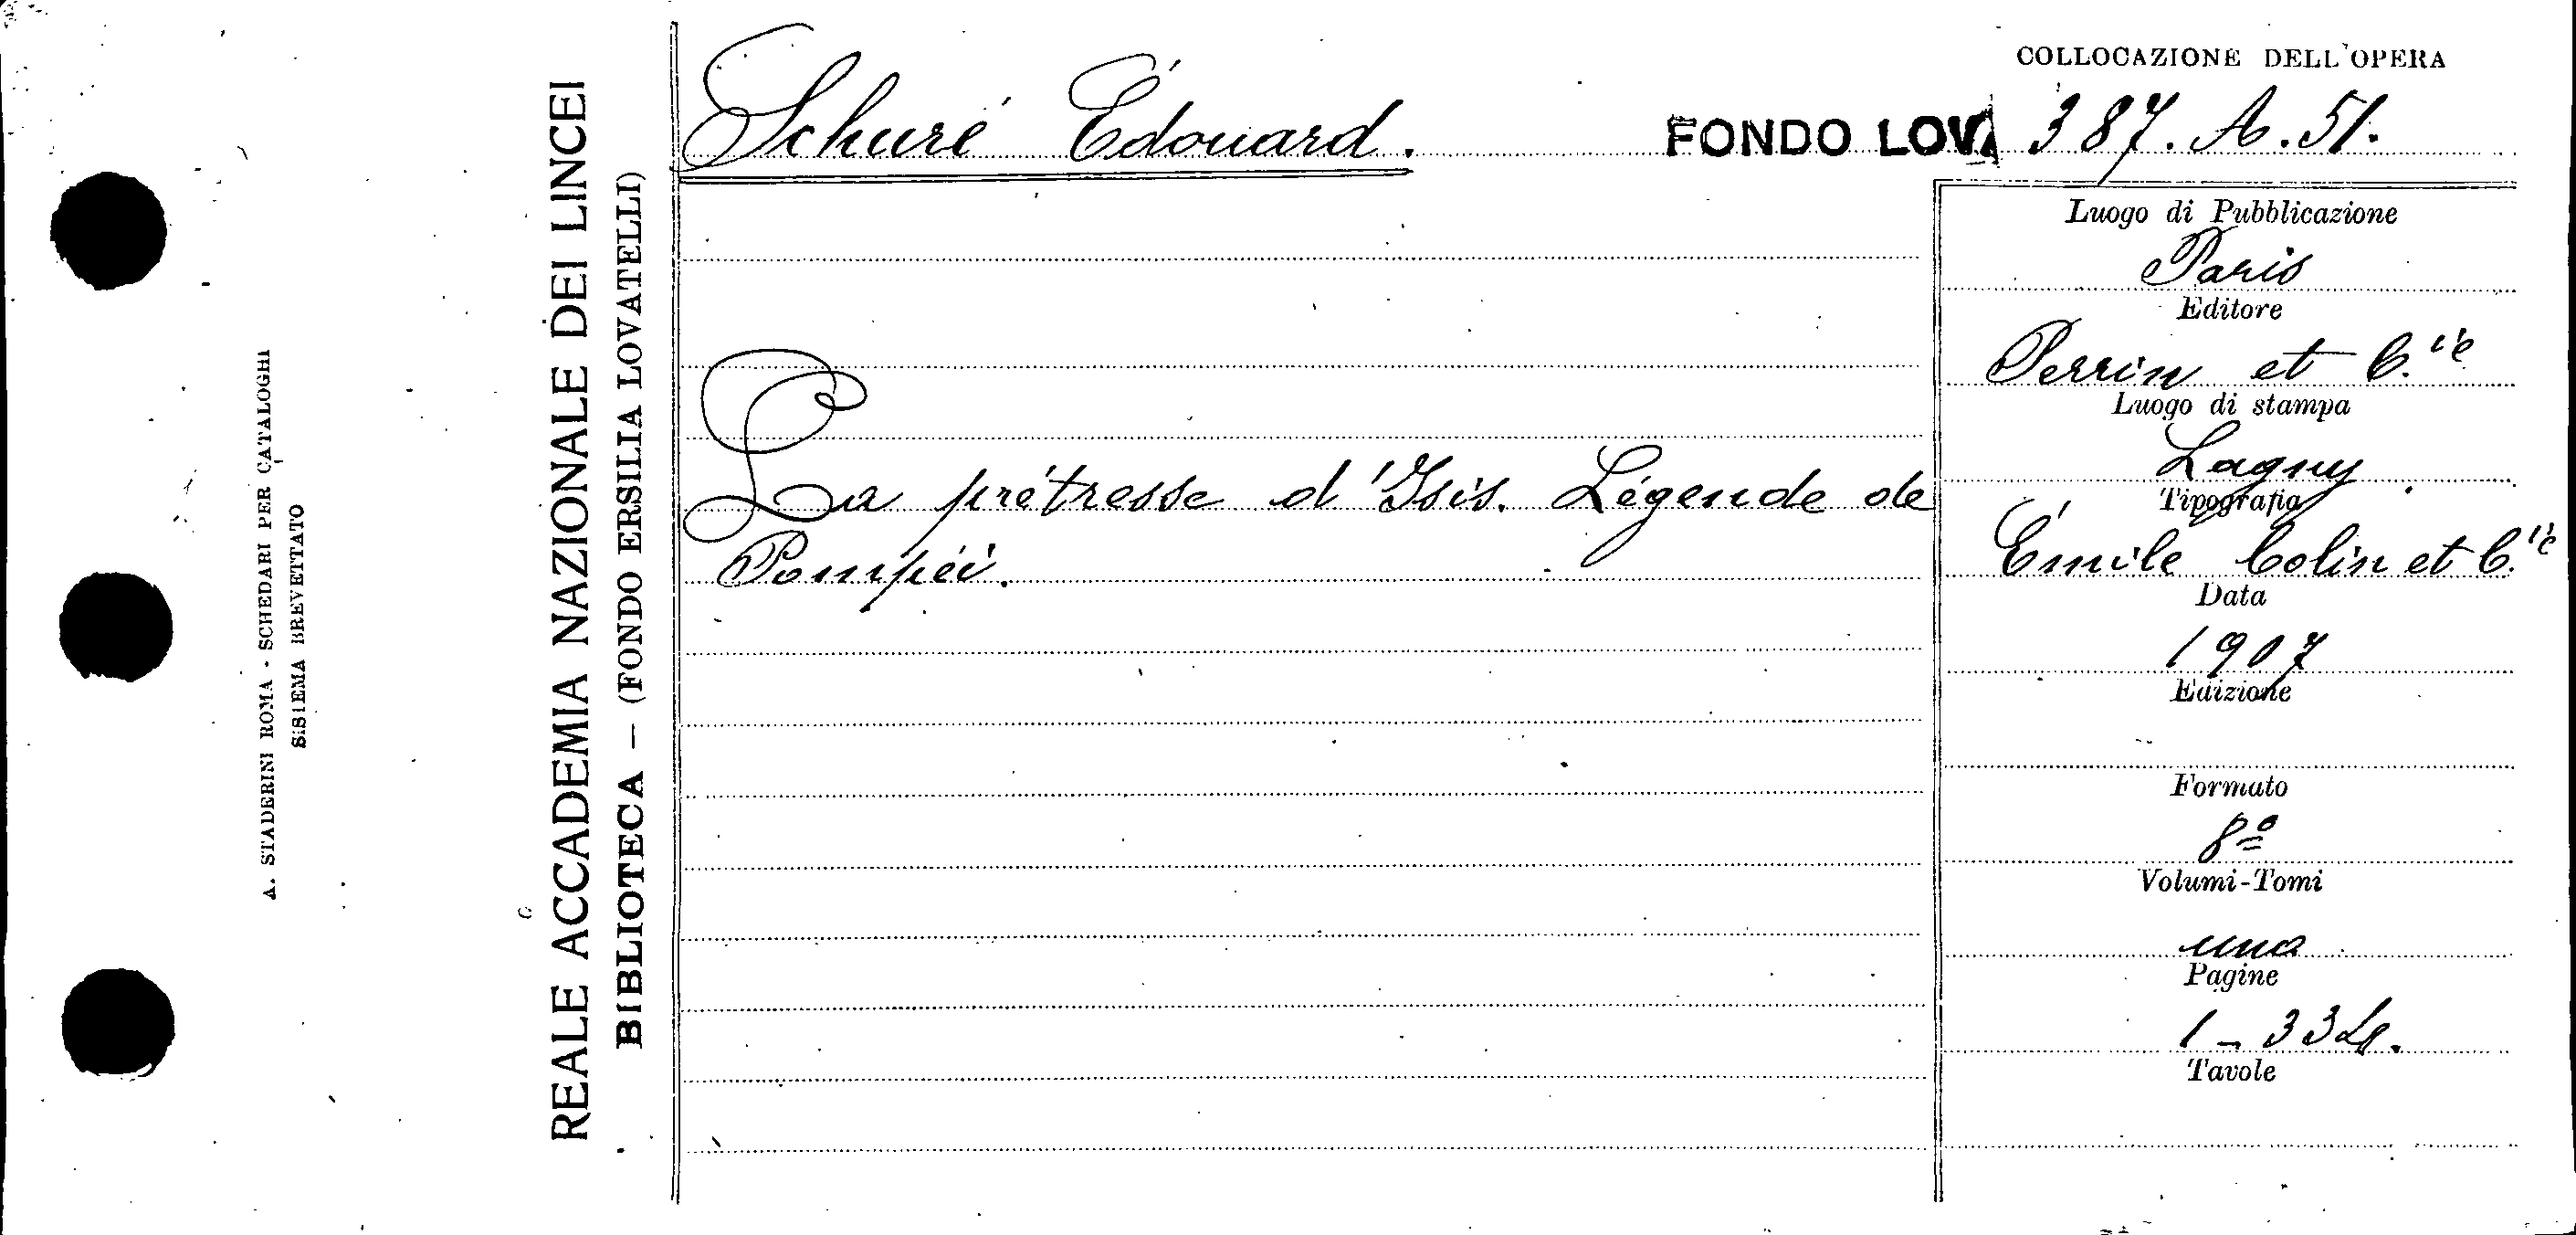 A. STADERINI ROMA - SCHEDARI PER CATALOGHI
SISTEMA BREVETTATO
REALE ACCADEMIA NAZIONALE DEI LINCEI
BIBLIOTECA — (FONDO ERSILIA LOVATELLI)
COLLOCAZIONE DELL'OPERA
Schuré Édouard. FONDO LOV. 387. A. 51.
La prétresse d'Isis. Légende de
Pompéi.
Luogo di Pubblicazione
Paris
Editore
Perrin et C.ie
Luogo di stampa
Lagny
Tipografia
Émile Colin et C.ie
Data
1907
Edizione
Formato
8º
Volumi-Tomi
uno
Pagine
1 -
Tavole